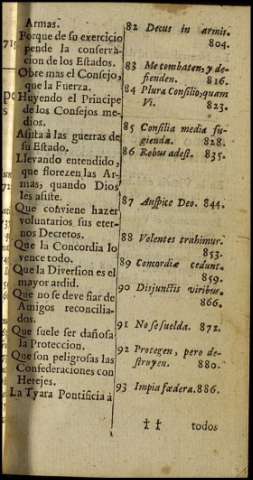 Armas.
Porque de su exercicio
pende la conserva-
cion de los Estados.
Obre mas el Consejo,
que la Fuerza.
Huyendo el Principe
de los Consejos me-
dios.
Asista à las guerras de
su Estado.
Llevando entendido,
que florezen las Ar-
mas; quando Dios
les asiste.
Que conviene hazer
voluntarios sus eter-
nos Decretos.
Que la Concordia lo
vence todo.
Que la Diversion es el
mayor ardid.
Que no se deve fiar de
Amigos reconcilia-
dos.
Que suele ser dañosa
la Proteccion.
Que son peligrosas las
Confederaciones con
Herejes.
La Tyara Pontificia à
82 Decus in armis.
804.
83 Me combaten, y de-
fienden. 816.
84 Plura Consilio, quam
Vi. 823.
85 Consilia media fu-
gienda. 828.
86 Rebus adest. 835.
87 Auspice Deo. 844.
88 Volentes trahimur.
853.
89 Concordiæ cedunt.
859.
90 Disjunctis viribus.
866.
91 No se suelda. 872.
92 Protegen, pero de-
struyen. 880.
93 Impia fœdera. 886.
†† todos